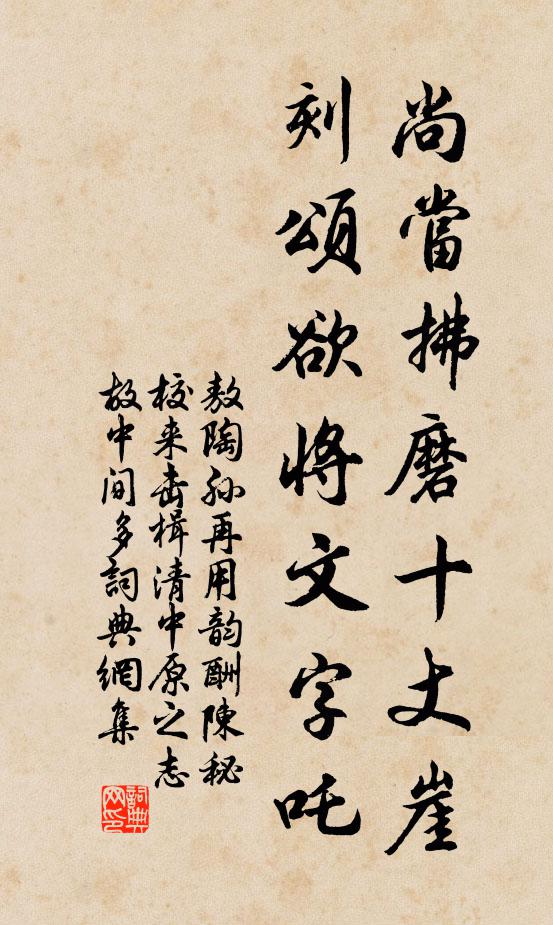 尚當拂磨十丈崖
刻頌欲將文字吒
敖陶孫再用韵酬陳秘
校来击楫清中原之志
故中间多詞典網集
詞典网印